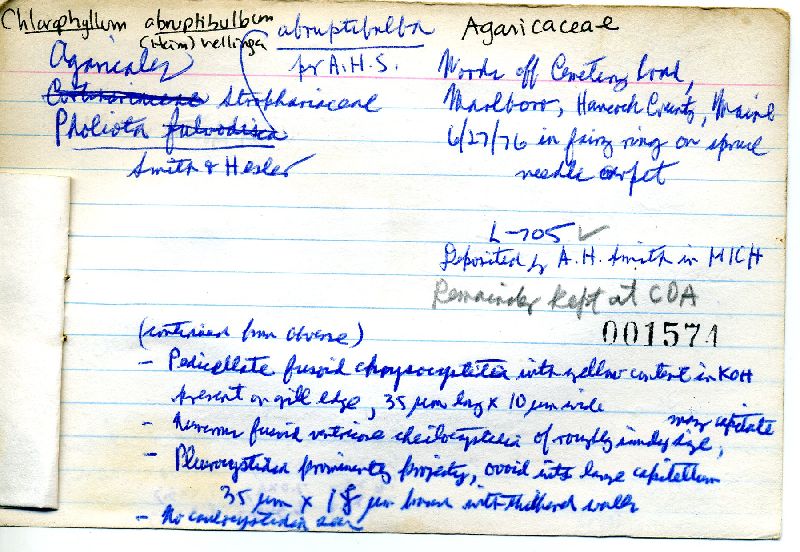 Chlorophyllum abruptibulbum
(Heim) Vellinga
abruptibulba
per A.H.S.
Agaricaceae
Agaricales
Cortinariaceae Strophariaceae
Pholiota fulvodisca
Smith & Hesler
Woods off Cemetery Road,
Marlboro, Hancock County, Maine
6/27/76 in fairy ring on spruce
needle carpet
L-705 ✓
Deposited by A.H. Smith in MICH
Remainder kept at COA
001574
(continued from obverse)
- Pedicellate fusoid chrysocystidia with yellow content in KOH
present on gill edge, 35 µm long x 10 µm wide
- Numerous fusoid ventricose cheilocystidia of roughly similar size,
many capitate
- Pleurocystidia prominently project, ovoid with large capitellum
35 µm x 18 µm broad with thickened walls
- No caulocystidia seen